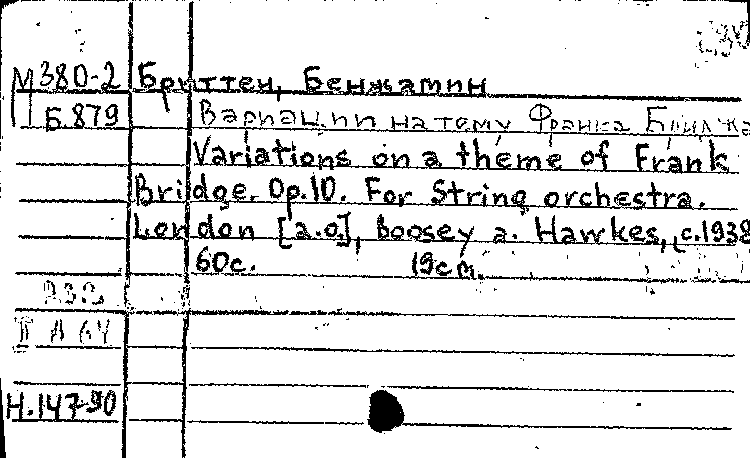 М380-2 Бриттен, Бенжамин
Б.879 Вариации на тему Франка Бриджа
Variations on a theme of Frank
Bridge. Op.10. For String orchestra.
London [a.o.], Boosey a. Hawkes, c.1938
60с. 19cm.
II A 64
Н.147-90